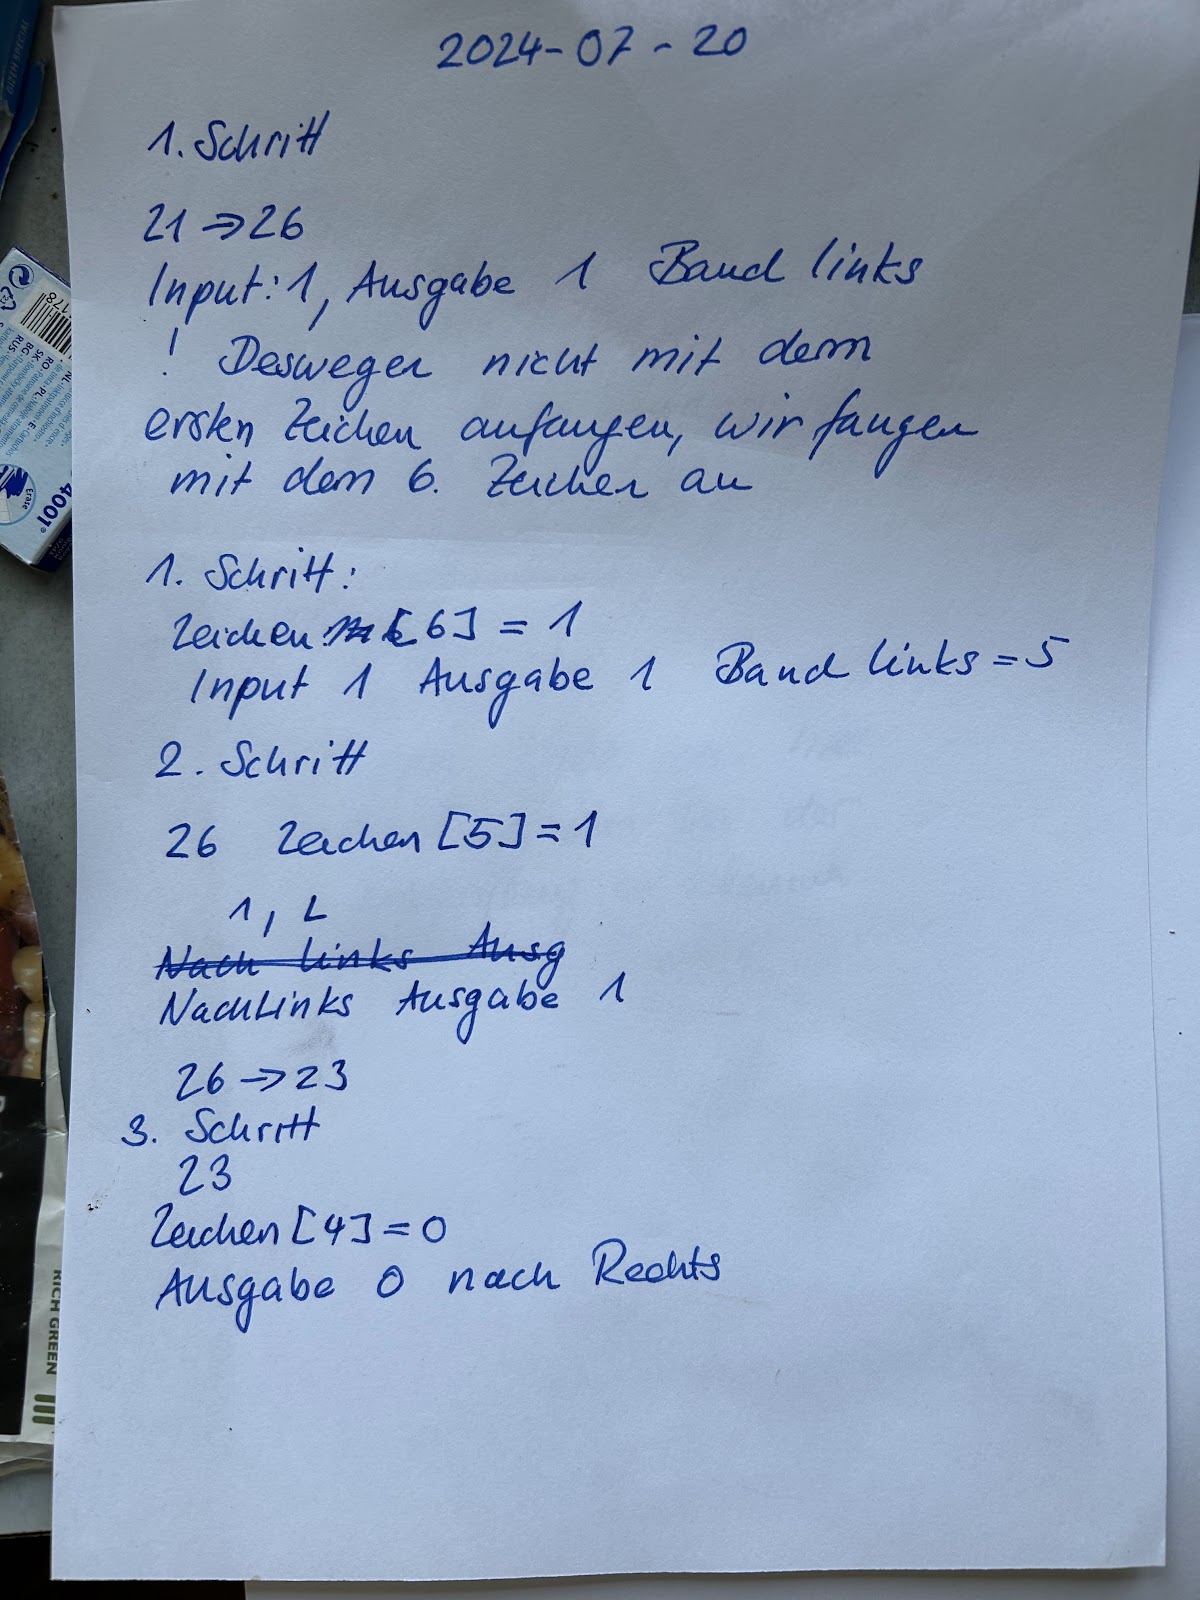 2024-07-20
1. Schritt
21 → 26
Input: 1, Ausgabe 1 Band links
! Deswegen nicht mit dem
ersten Zeichen anfangen, wir fangen
mit dem 6. Zeichen an
1. Schritt:
Zeichen [6] = 1
Input 1 Ausgabe 1 Band links = 5
2. Schritt
26 Zeichen [5] = 1
1, L
Nach links Ausg
Nachlinks Ausgabe 1
26 → 23
3. Schritt
23
Zeichen [4] = 0
Ausgabe 0 nach Rechts
4001
Erase
178
RICH GREEN